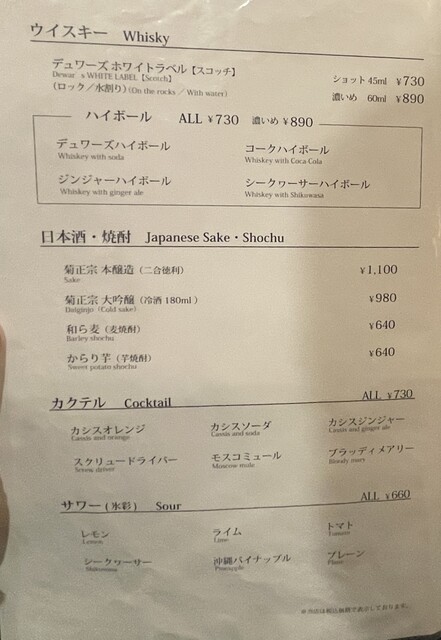 ウイスキー Whisky
デュワーズ ホワイトラベル【スコッチ】 ショット 45ml ¥730
Dewar's WHITE LABEL【Scotch】
（ロック／水割り）(On the rocks ／ With water) 濃いめ 60ml ¥890
ハイボール ALL ¥730 濃いめ ¥890
デュワーズハイボール コークハイボール
Whiskey with soda Whiskey with Coca Cola
ジンジャーハイボール シークヮーサーハイボール
Whiskey with ginger ale Whiskey with Shikuwasa
日本酒・焼酎 Japanese Sake・Shochu
菊正宗 本醸造（二合徳利） ¥1,100
Sake
菊正宗 大吟醸（冷酒 180ml ） ¥980
Daiginjo（Cold sake）
和ら麦（麦焼酎） ¥640
Barley shochu
からり芋（芋焼酎） ¥640
Sweet potato shochu
カクテル Cocktail ALL ¥730
カシスオレンジ カシスソーダ カシスジンジャー
Cassis and orange Cassis and soda Cassis and ginger ale
スクリュードライバー モスコミュール ブラッディメアリー
Screw driver Moscow mule Bloody mary
サワー（氷彩） Sour ALL ¥660
レモン ライム トマト
Lemon Lime Tomato
シークヮーサー 沖縄パイナップル プレーン
Shikuwasa Pineapple Plane
※当店は税込価格で表示しております。